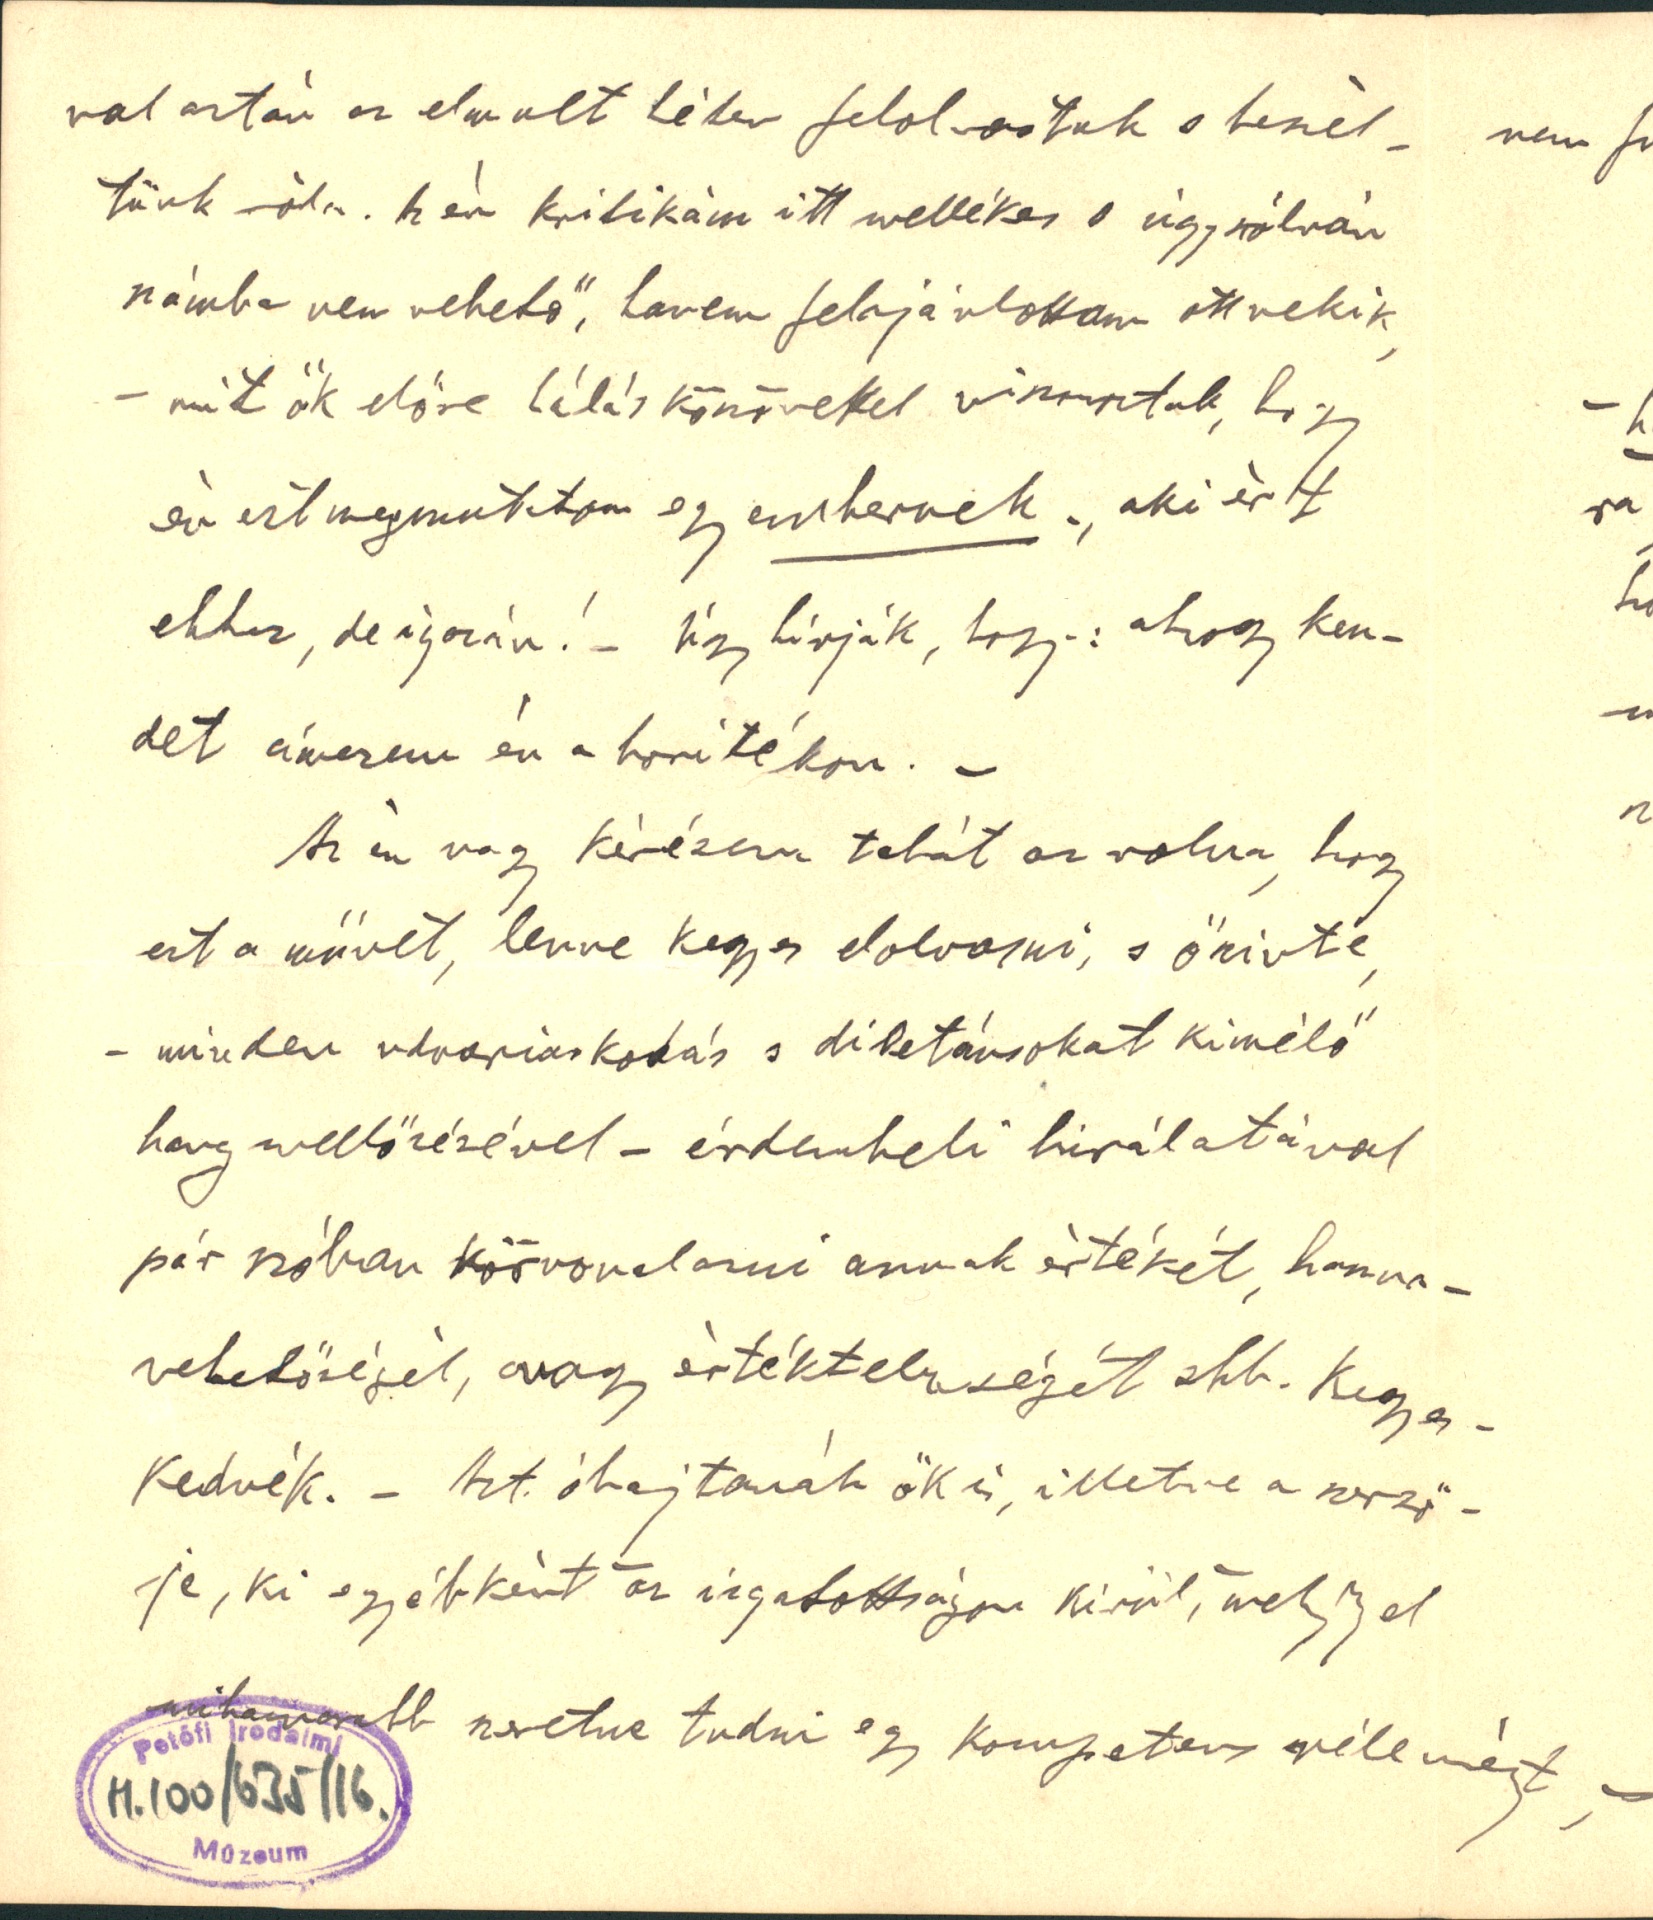 val aztán az elmult héten felolvastuk s beszél-
tünk róla. Az én kritikám itt mellékes s úgyszólván
számba nem vehető, hanem felajánlottam ott nekik,
- mit ők előre hálás köszönettel viszonoztak, hogy
én ezt megmutatom egy embernek, aki ért
ehhez, de igazán! - Úgy hívják, hogy: ahogy ken-
det címezem én a borítékon. -
Az én nagy kérésem tehát az volna, hogy
ezt a művét, lenne kegyes elolvasni, s őszinte,
- minden udvariaskodás s diletánsokat kimélő
hang mellőzésével - érdembeli birálatával
pár szóban körvonalazni annak értékét, haszna-
vehetőségét, avagy értéktelenségét stb. kegyes-
kednék. - Azt óhajtanák ők is, illetve a szerző-
je, ki egyébként az izgatottságon kivül, melyjel
mihamarabb szeretne tudni egy kompetens véleményt, -
nem
Petőfi Irodalmi
H.100/635/16.
Múzeum